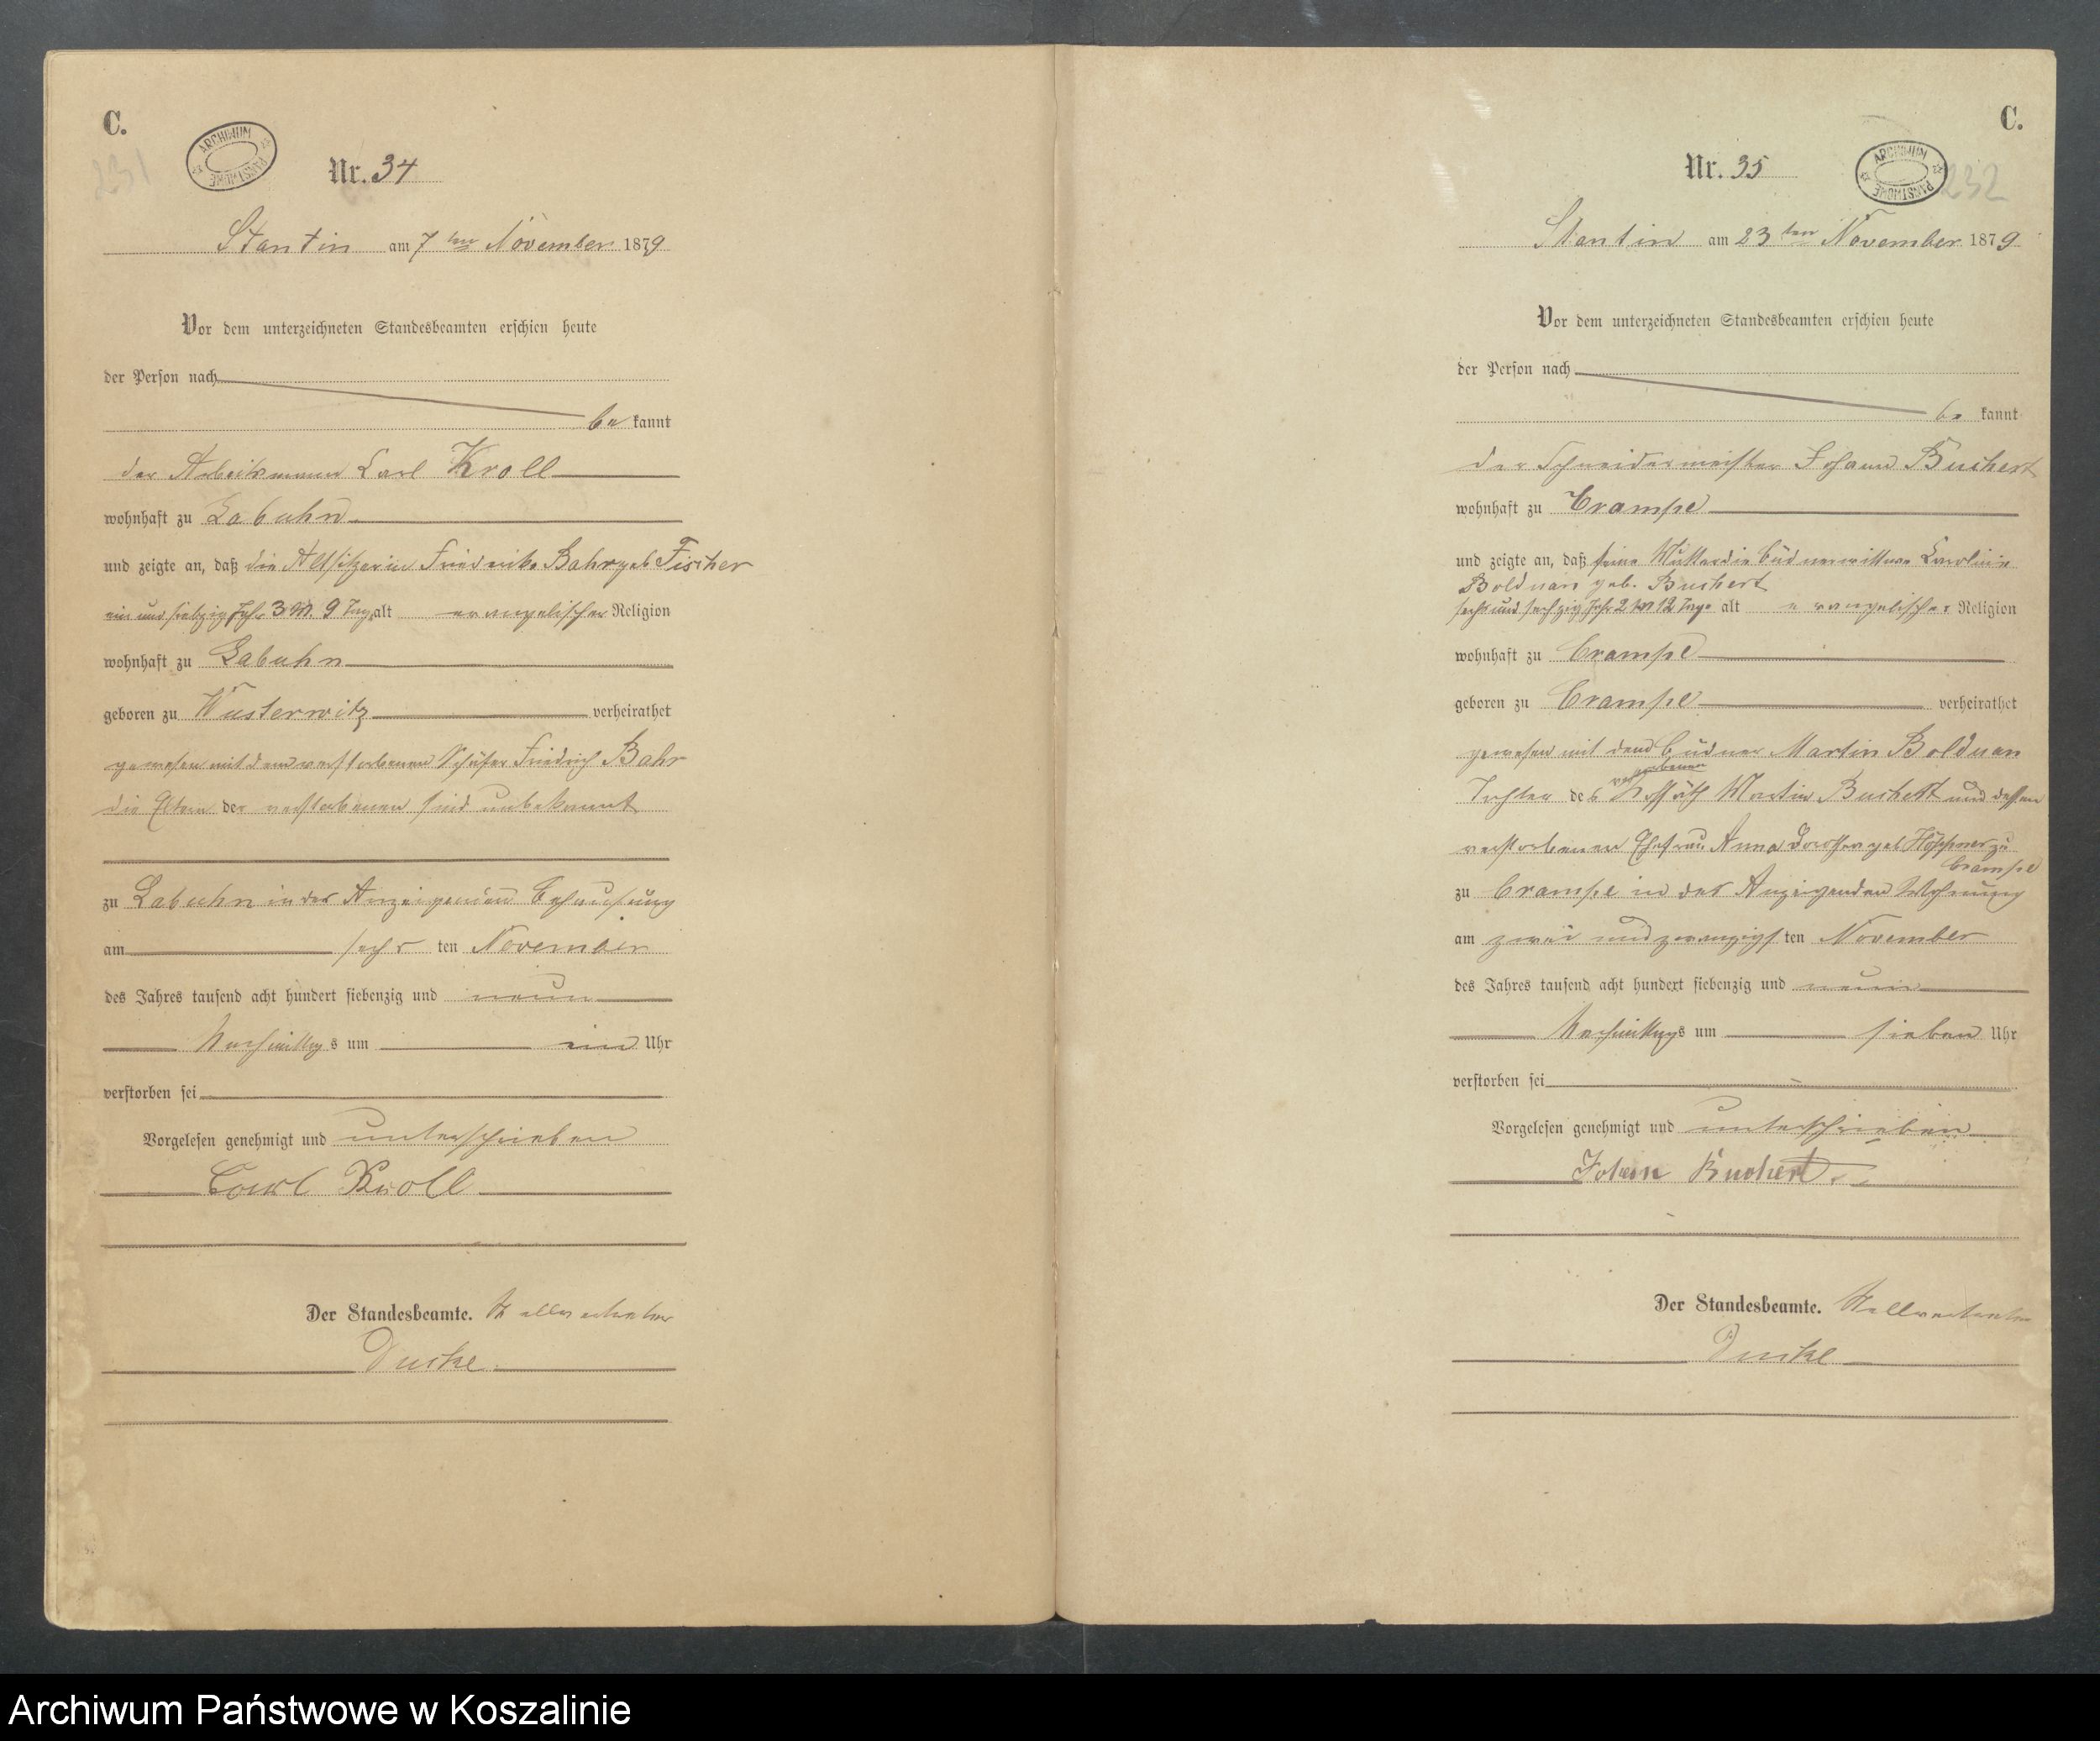 C.
231
ARCHIWUM PAŃSTWOWE
Nr. 34
Stantin am 7ten November 1879
Vor dem unterzeichneten Standesbeamten erschien heute
der Person nach
be kannt
der Arbeitsmann Carl Kroll
wohnhaft zu Labuhn
und zeigte an, daß die Altsitzerin Friederike Bahr geb Fischer
ein und siebzig Jahr 3 M. 9 Tage alt evangelischer Religion
wohnhaft zu Labuhn
geboren zu Wusterwitz verheirathet
gewesen mit dem verstorbenen Schäfer Friedrich Bahr
die Eltern der verstorbenen sind unbekannt
zu Labuhn in der Anzeigenden Behausung
am sechs ten November
des Jahres tausend acht hundert siebenzig und neun
Nachmittag s um ein Uhr
verstorben sei
Vorgelesen genehmigt und unterschrieben
Carl Kroll
Der Standesbeamte. Stellvertreter
C.
232
ARCHIWUM PAŃSTWOWE
Nr. 35
Stantin am 23ten November 1879
Vor dem unterzeichneten Standesbeamten erschien heute
der Person nach
be kannt
der Schneidermeister Johann Buchert
wohnhaft zu Crampe
und zeigte an, daß seine Mutter die Büdnerwittwe Caroline
Bolduan geb. Buchert
sechs und sechzig Jahr 2 M 12 Tage alt evangelischer Religion
wohnhaft zu Crampe
geboren zu Crampe verheirathet
gewesen mit dem Büdner Martin Bolduan
verstorbenen
Tochter des Kossäth Martin Buchert und dessen
verstorbenen Ehefrau Anna Dorothea geb Höppner zu
Crampe
zu Crampe in des Anzeigenden Wohnung
am zwei und zwanzigs ten November
des Jahres tausend acht hundert siebenzig und neun
Nachmittags um sieben Uhr
verstorben sei
Vorgelesen genehmigt und unterschrieben
Johann Buchert
Der Standesbeamte. Stellvertreter
Archiwum Państwowe w Koszalinie